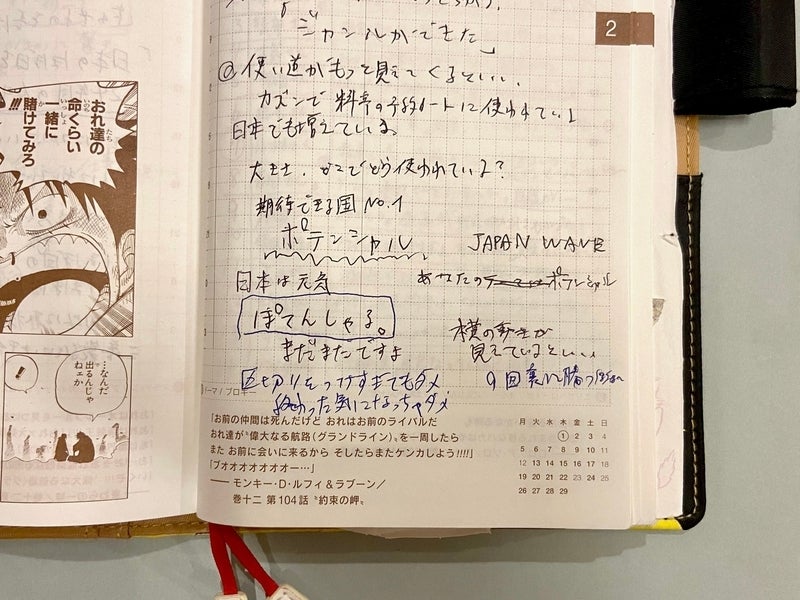 おれ達の
命くらい
一緒に
賭けてみろ
!!!
…なんだ
出るんじゃ
ねェか
!
2
ジャンルができた」
@ 使い道がもっと見えてくるといい、
日本でも増えている。
どこでどう使われている?
期待できる国 No.1
ポテンシャル
JAPAN WAVE
日本は元気
あなたの ポテンシャル
ぽてんしゃる。
まだまだですよ
横の動きが
見えているといい
区切りをつけすぎてもダメ
終わった気になっちゃダメ
9回裏に勝つ
「お前の仲間は死んだけど おれはお前のライバルだ
おれ達が〝偉大なる航路(グランドライン)〟を一周したら
また お前に会いに来るから そしたらまたケンカしよう!!!!」
「ブオオオオオオオー…」
―― モンキー・D・ルフィ&ラブーン/
巻十二 第104話 〝約束の岬〟
月 火 水 木 金 土 日
1 2 3 4
5 6 7 8 9 10 11
12 13 14 15 16 17 18
19 20 21 22 23 24 25
26 27 28 29